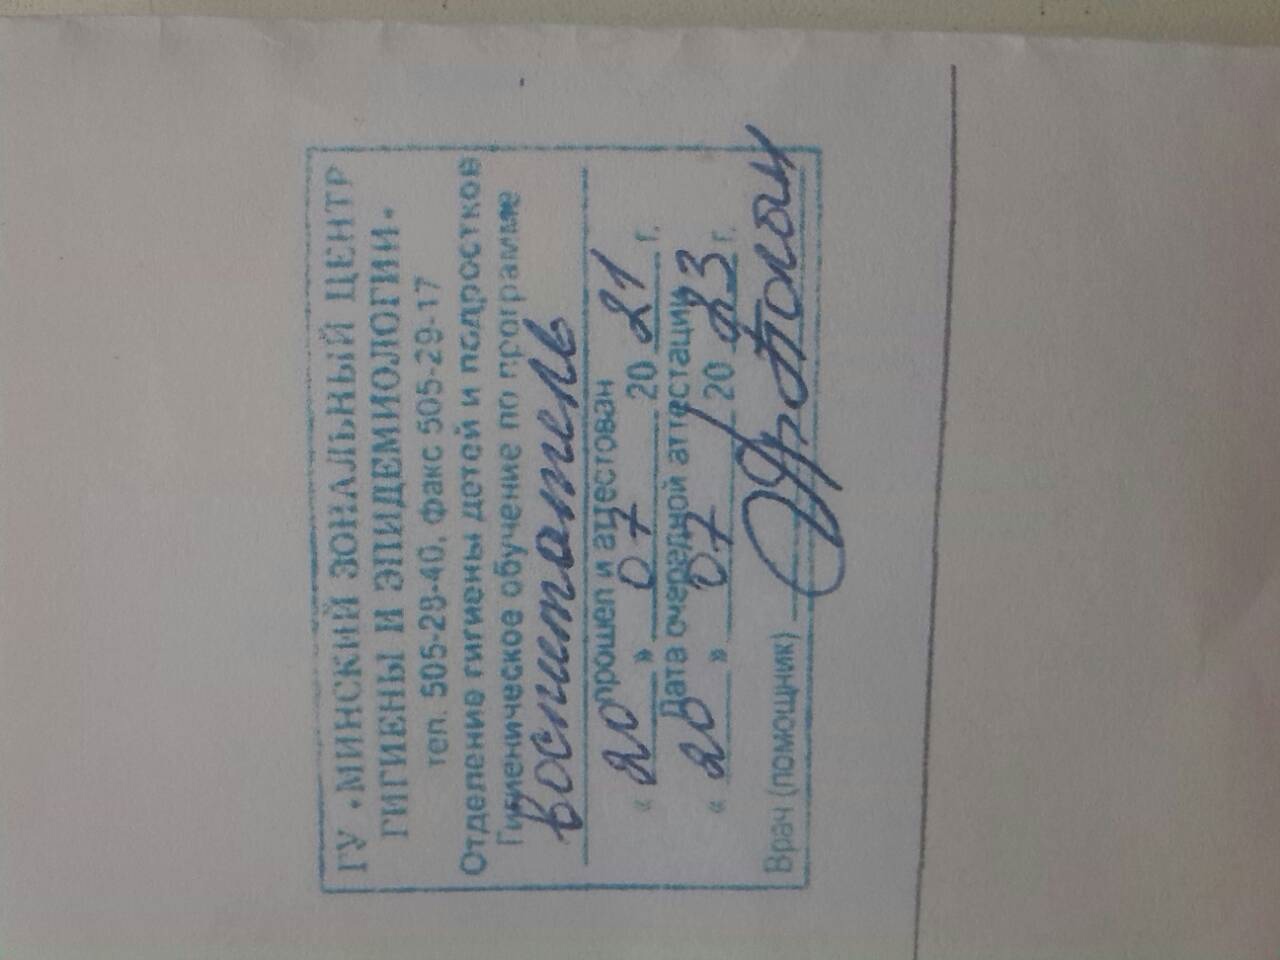 ГУ «МИНСКИЙ ЗОНАЛЬНЫЙ ЦЕНТР
ГИГИЕНЫ И ЭПИДЕМИОЛОГИИ»
тел. 505-28-40, факс 505-29-17
Отделение гигиены детей и подростков
Гигиеническое обучение по программе
воспитатель
прошел и аттестован
« 20 » 07 20 21 г.
Дата очередной аттестации
« 20 » 07 20 23 г.
Врач (помощник)